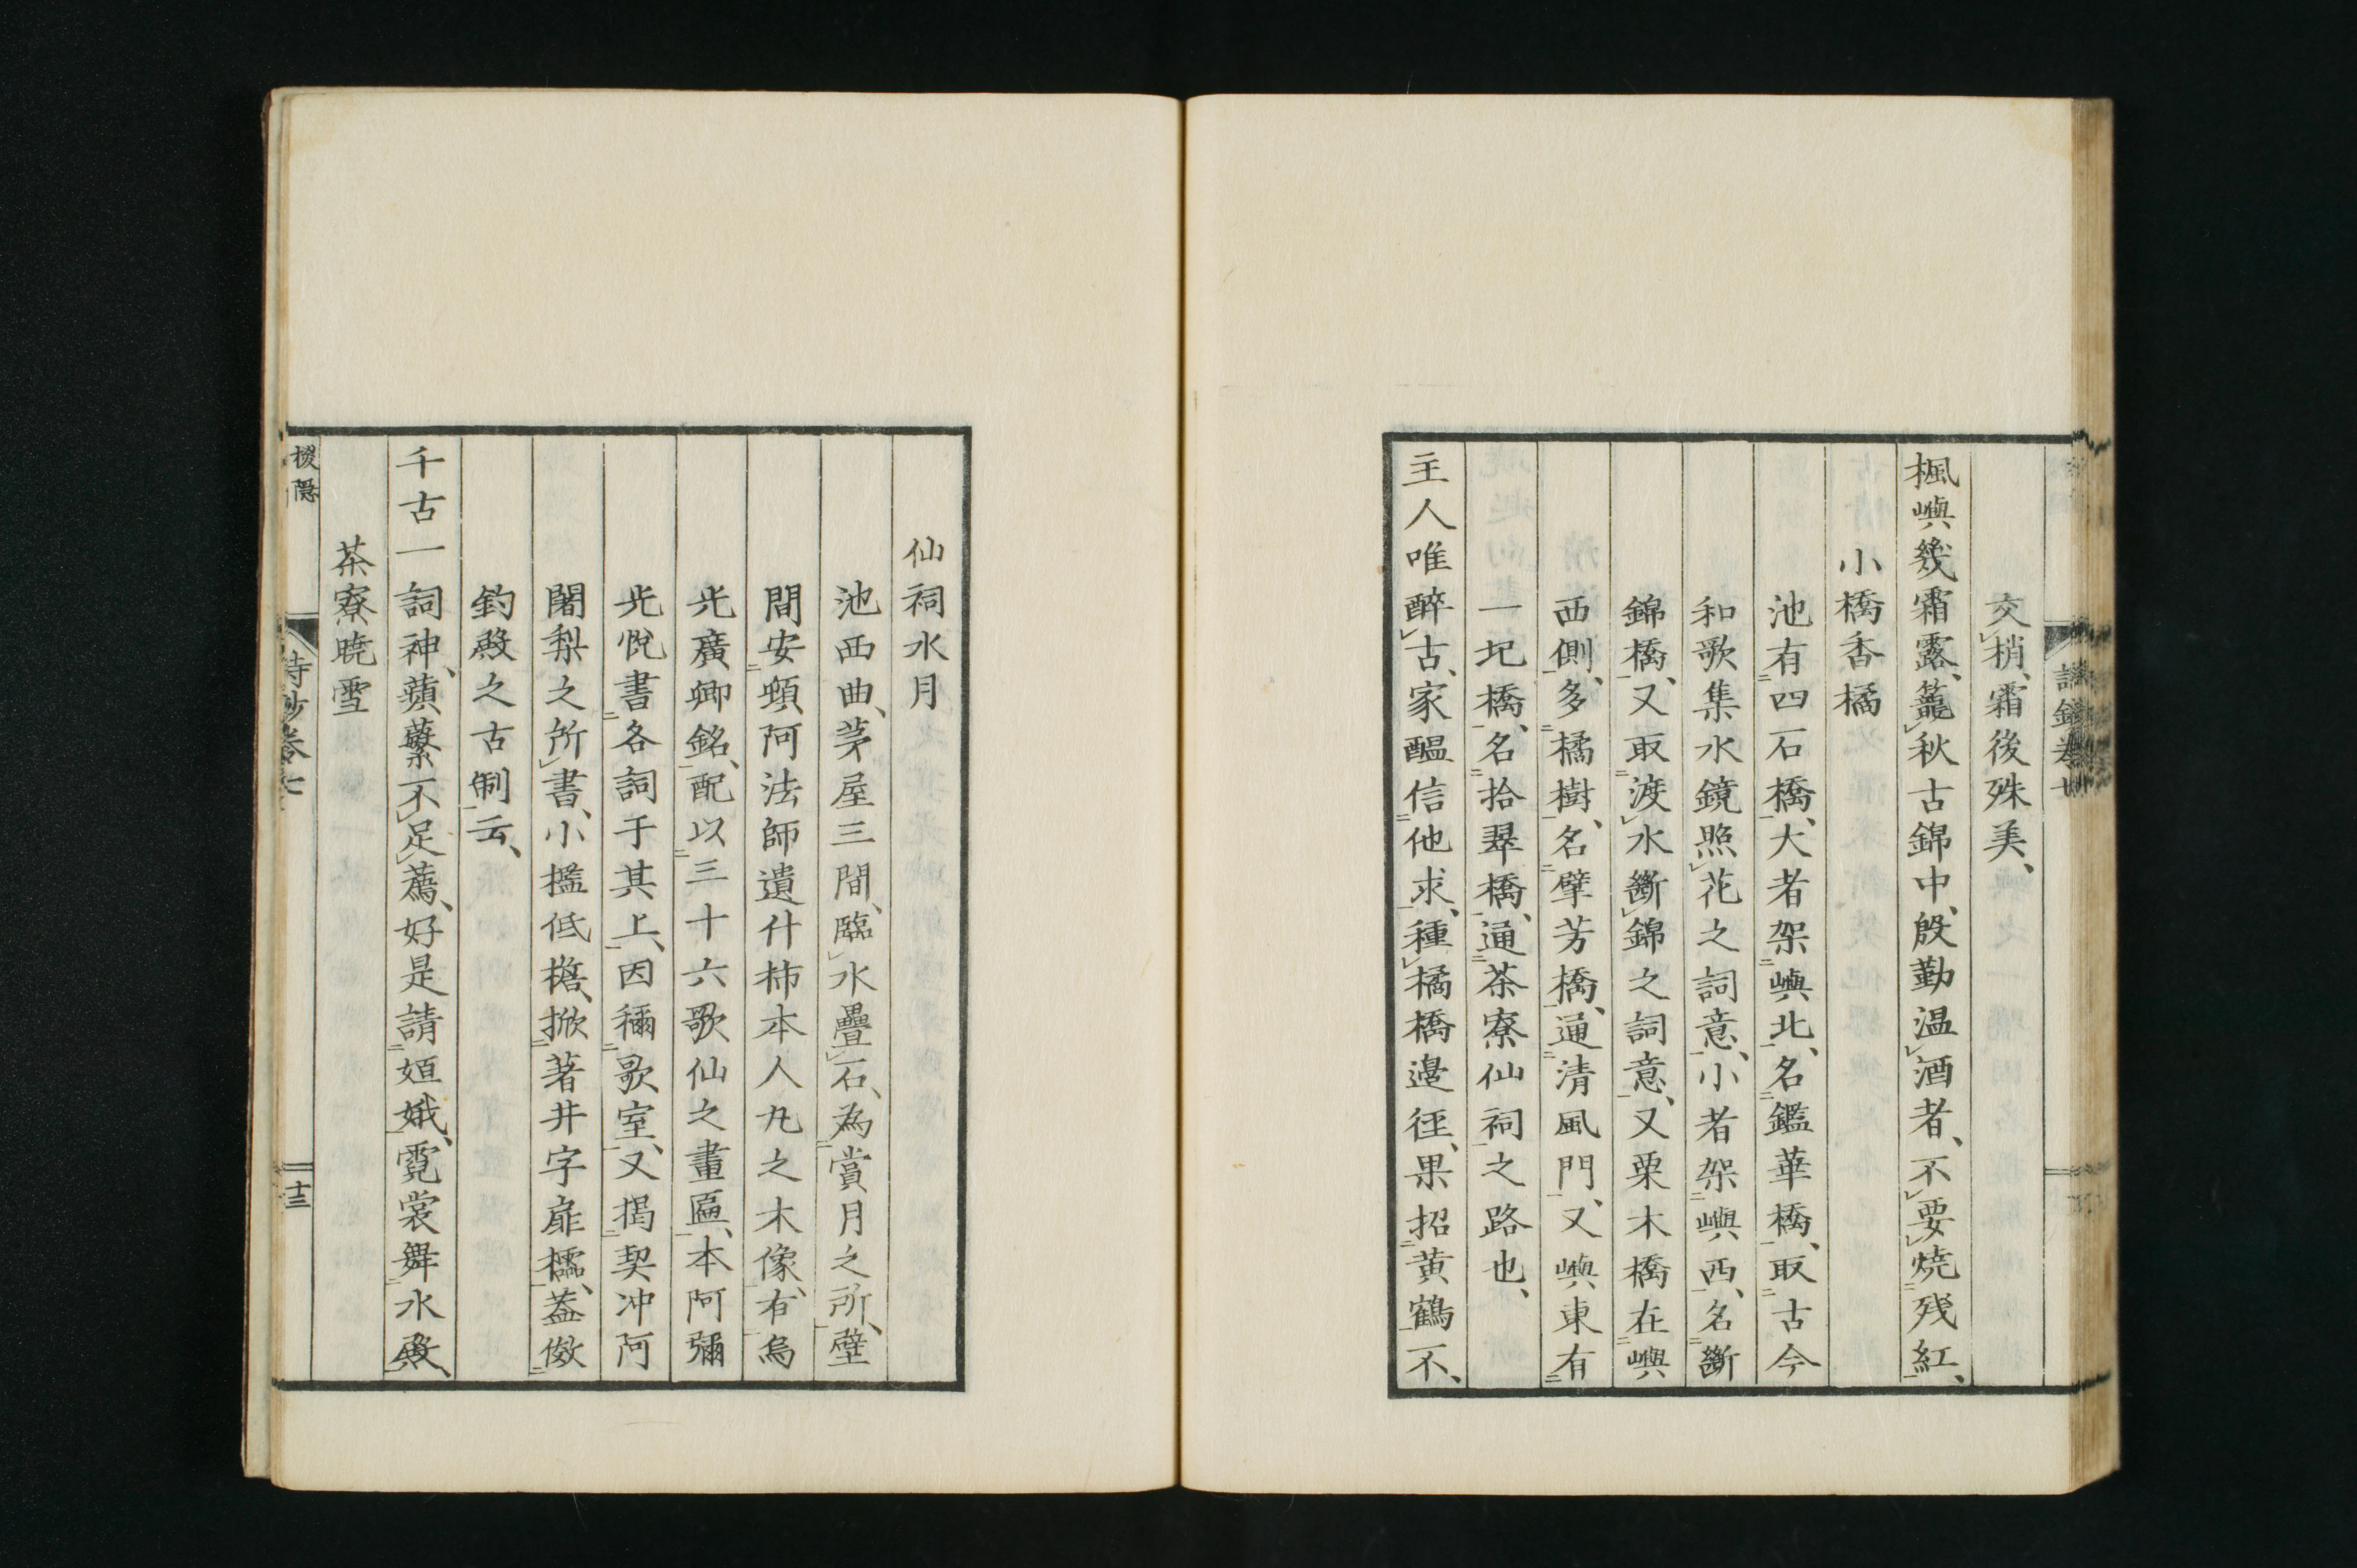 交梢、霜後殊美、
楓嶼幾霜露、籠秋古錦中、殷勤温酒者、不要焼残紅、
小橋香橘
池有四石橋、大者架嶼北、名鑑華橋、取古今
和歌集水鏡照花之詞意、小者架嶼西、名斷
錦橋、又取渡水斷錦之詞意、又栗木橋在嶼
西側、多橘樹、名擘芳橋、通清風門、又嶼東有
一圯橋、名拾翠橋、通茶寮仙祠之路也、
主人唯醉古、家醞信他求、種橘橋邉徑、果招黄鶴不、
仙祠水月
池西曲、茅屋三間、臨水疊石、為賞月之所、壁
間安頓阿法師遺什柿本人九之木像、有烏
光廣卿銘、配以三十六歌仙之畫匾、本阿彌
光悅書各詞于其上、因稱歌室、又揭契冲阿
闍梨之所書、小檻低檐、掀著井字扉櫺、葢倣
釣殿之古制云、
千古一詞神、蘋蘩不足薦、好是請姮娥、霓裳舞水殿、
茶寮暁雪
詩鈔卷七
十三